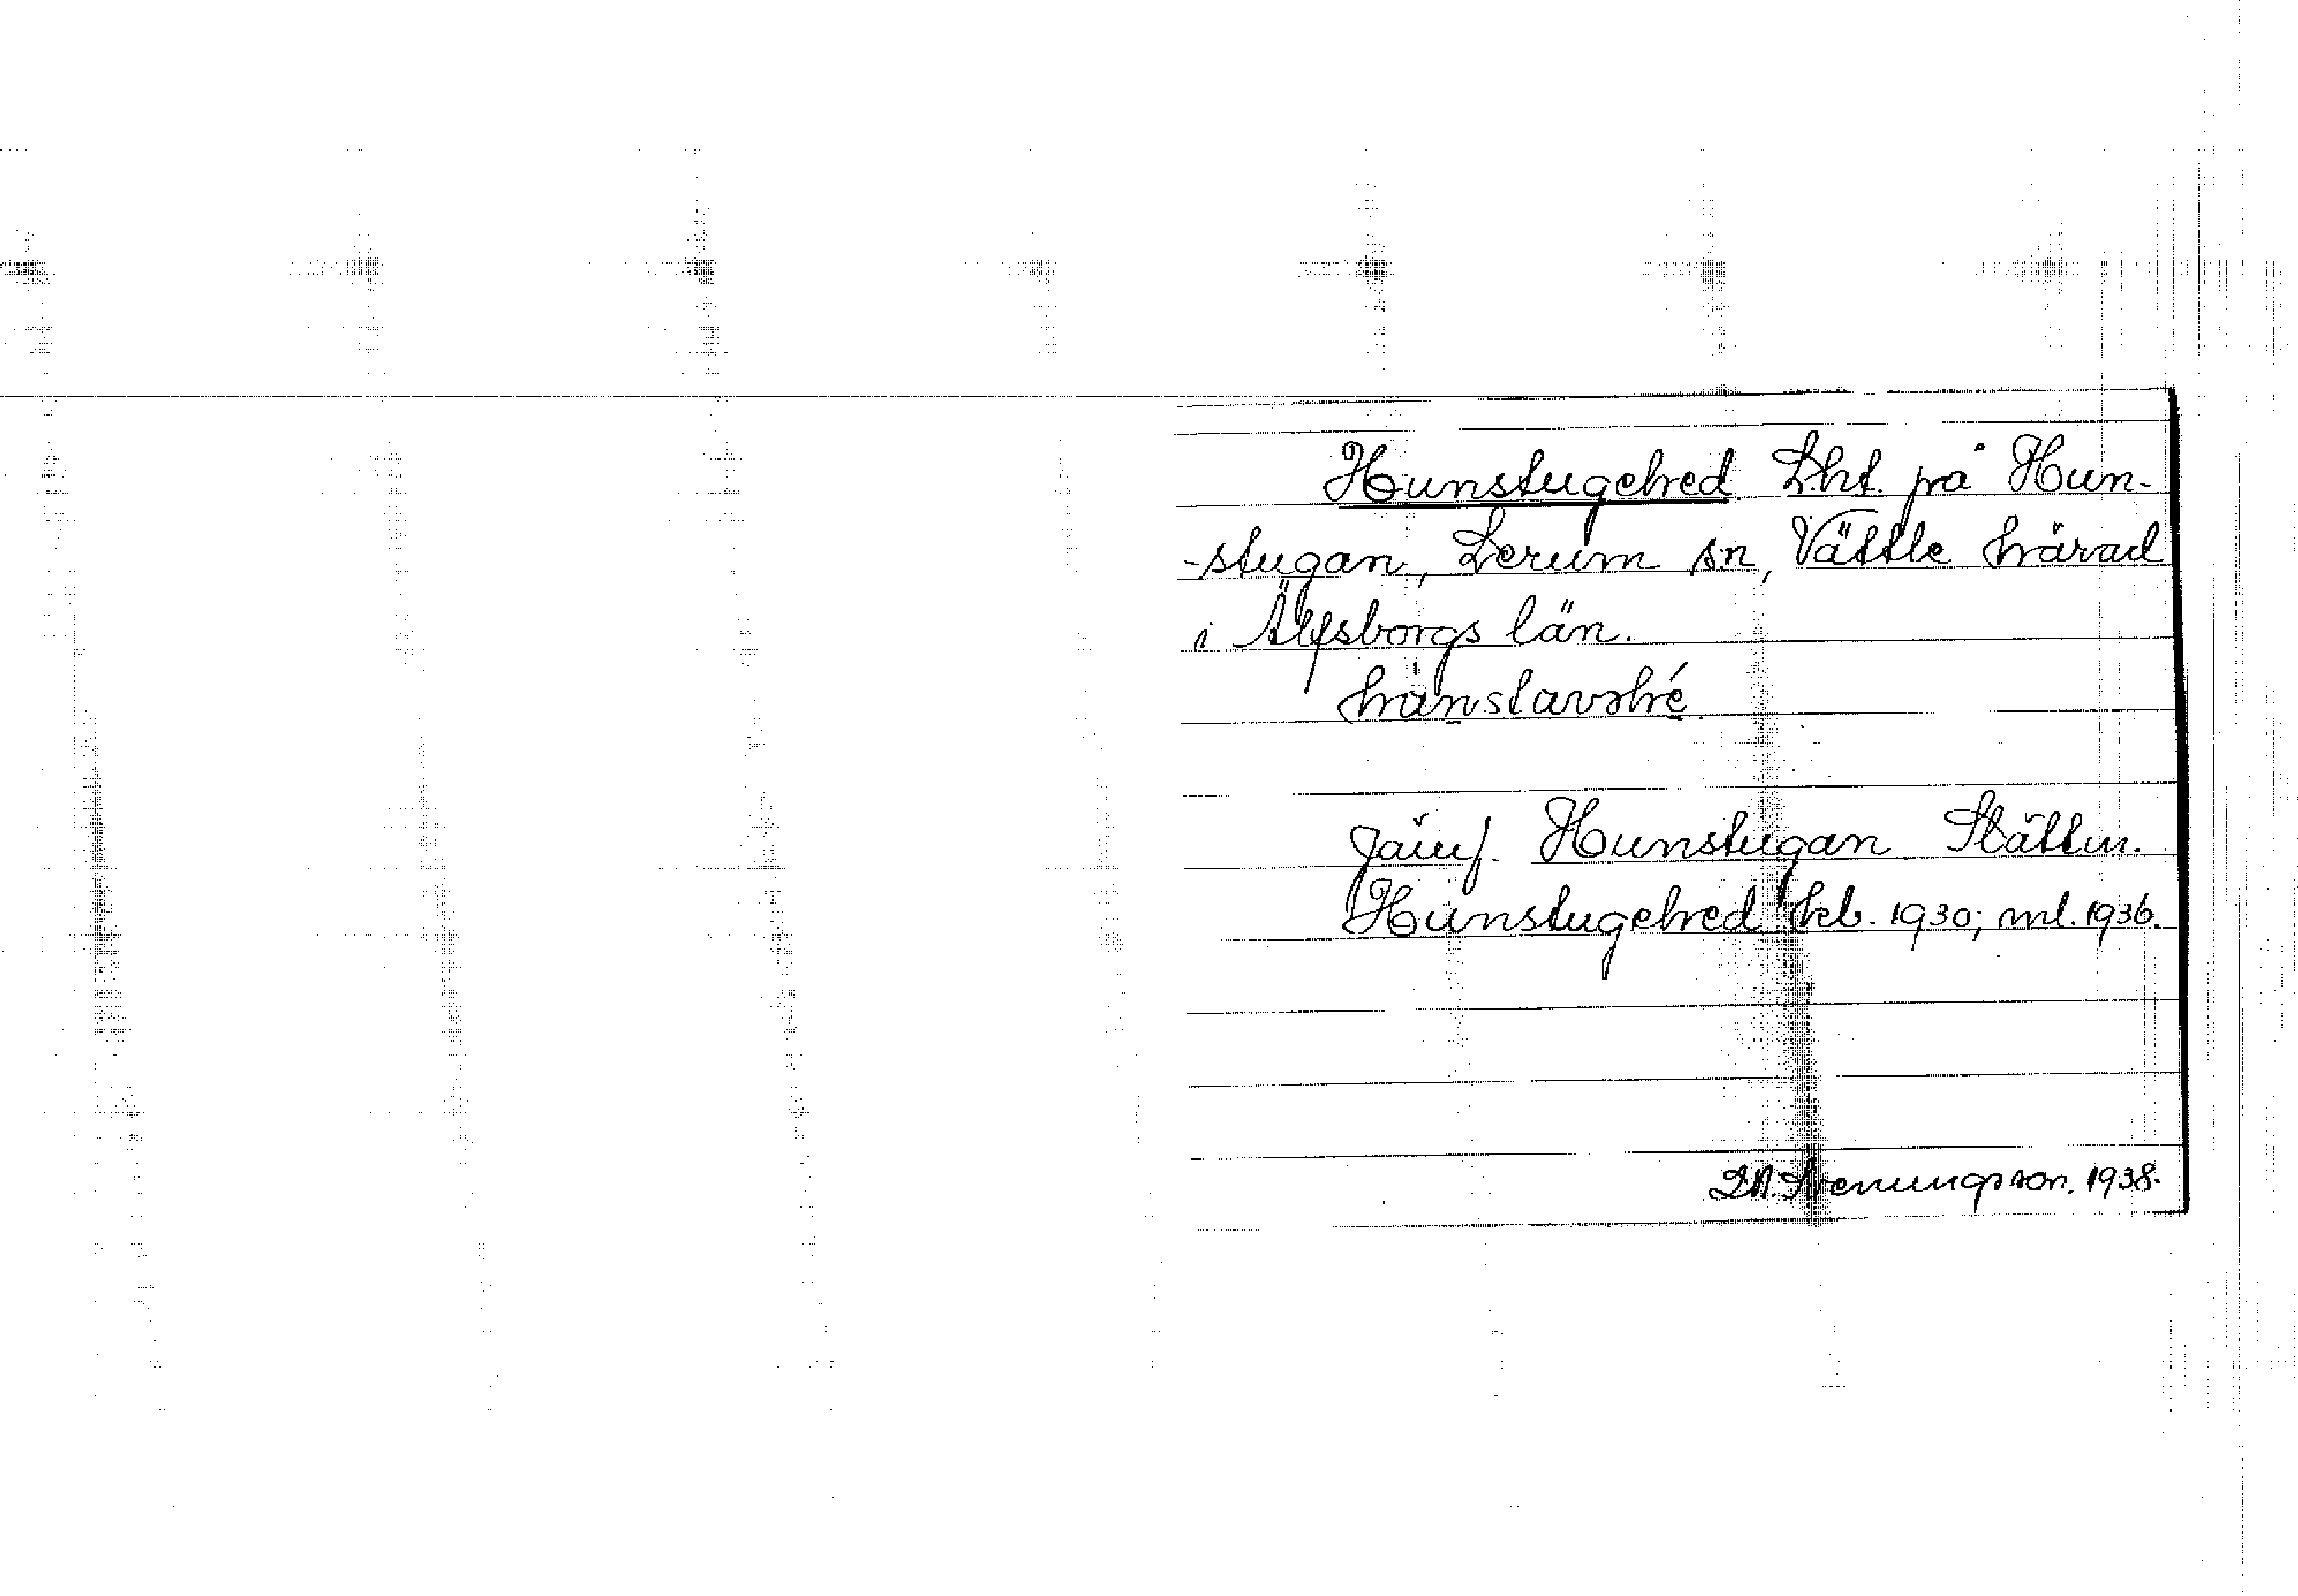 Hunstugebred. Lht. på Hun-
-stugan, Lerum sn, Vättle härad
i Älfsborgs län.
Jämf. Hunstugan Slättm.
Hunstugebred kb. 1930; ml. 1936.
Svenungsson. 1938.